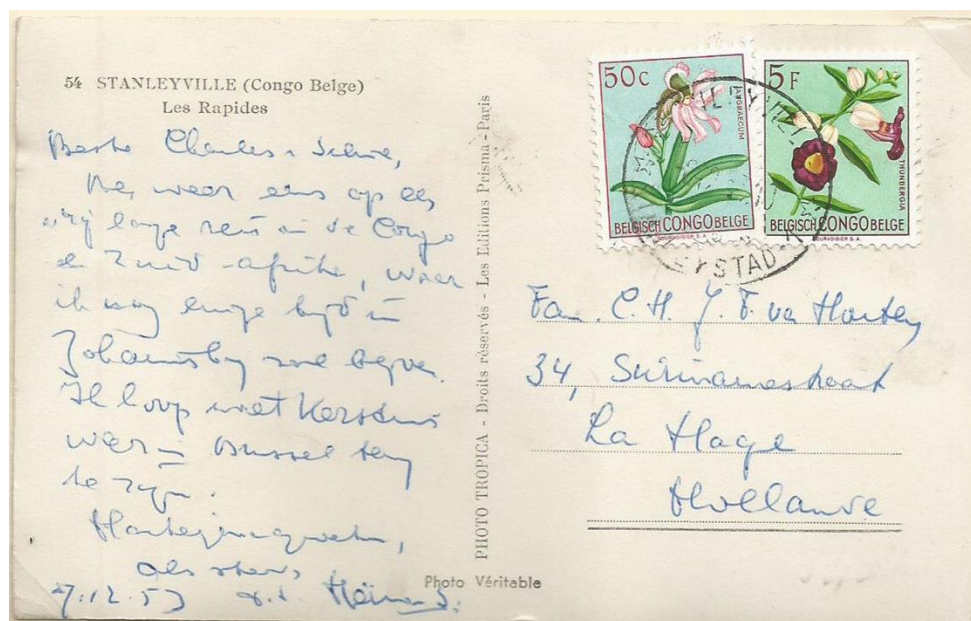 54 STANLEYVILLE (Congo Belge)
Les Rapides
Beste Charles
weer eens op een
vrij lange reis in de Congo
en Zuid-Afrika, waar
ik nog enige tijd in
Johannesbg
Ik hoop met Kerstmis
weer in Brussel terug
te zijn.
Hartelijke groeten,
als steeds
PHOTO TROPICA - Droits réservés - Les Editions Prisma - Paris
Photo Véritable
50C
ANGRAECUM
BELGISCH CONGO BELGE
COURVOISIER S.A.
5F
THUNBERGIA
BELGISCH CONGO BELGE
COURVOISIER S.A.
EYSTAD
Fam. C. H. J. F. van
34, Surinamestraat
La Haye
Hollande